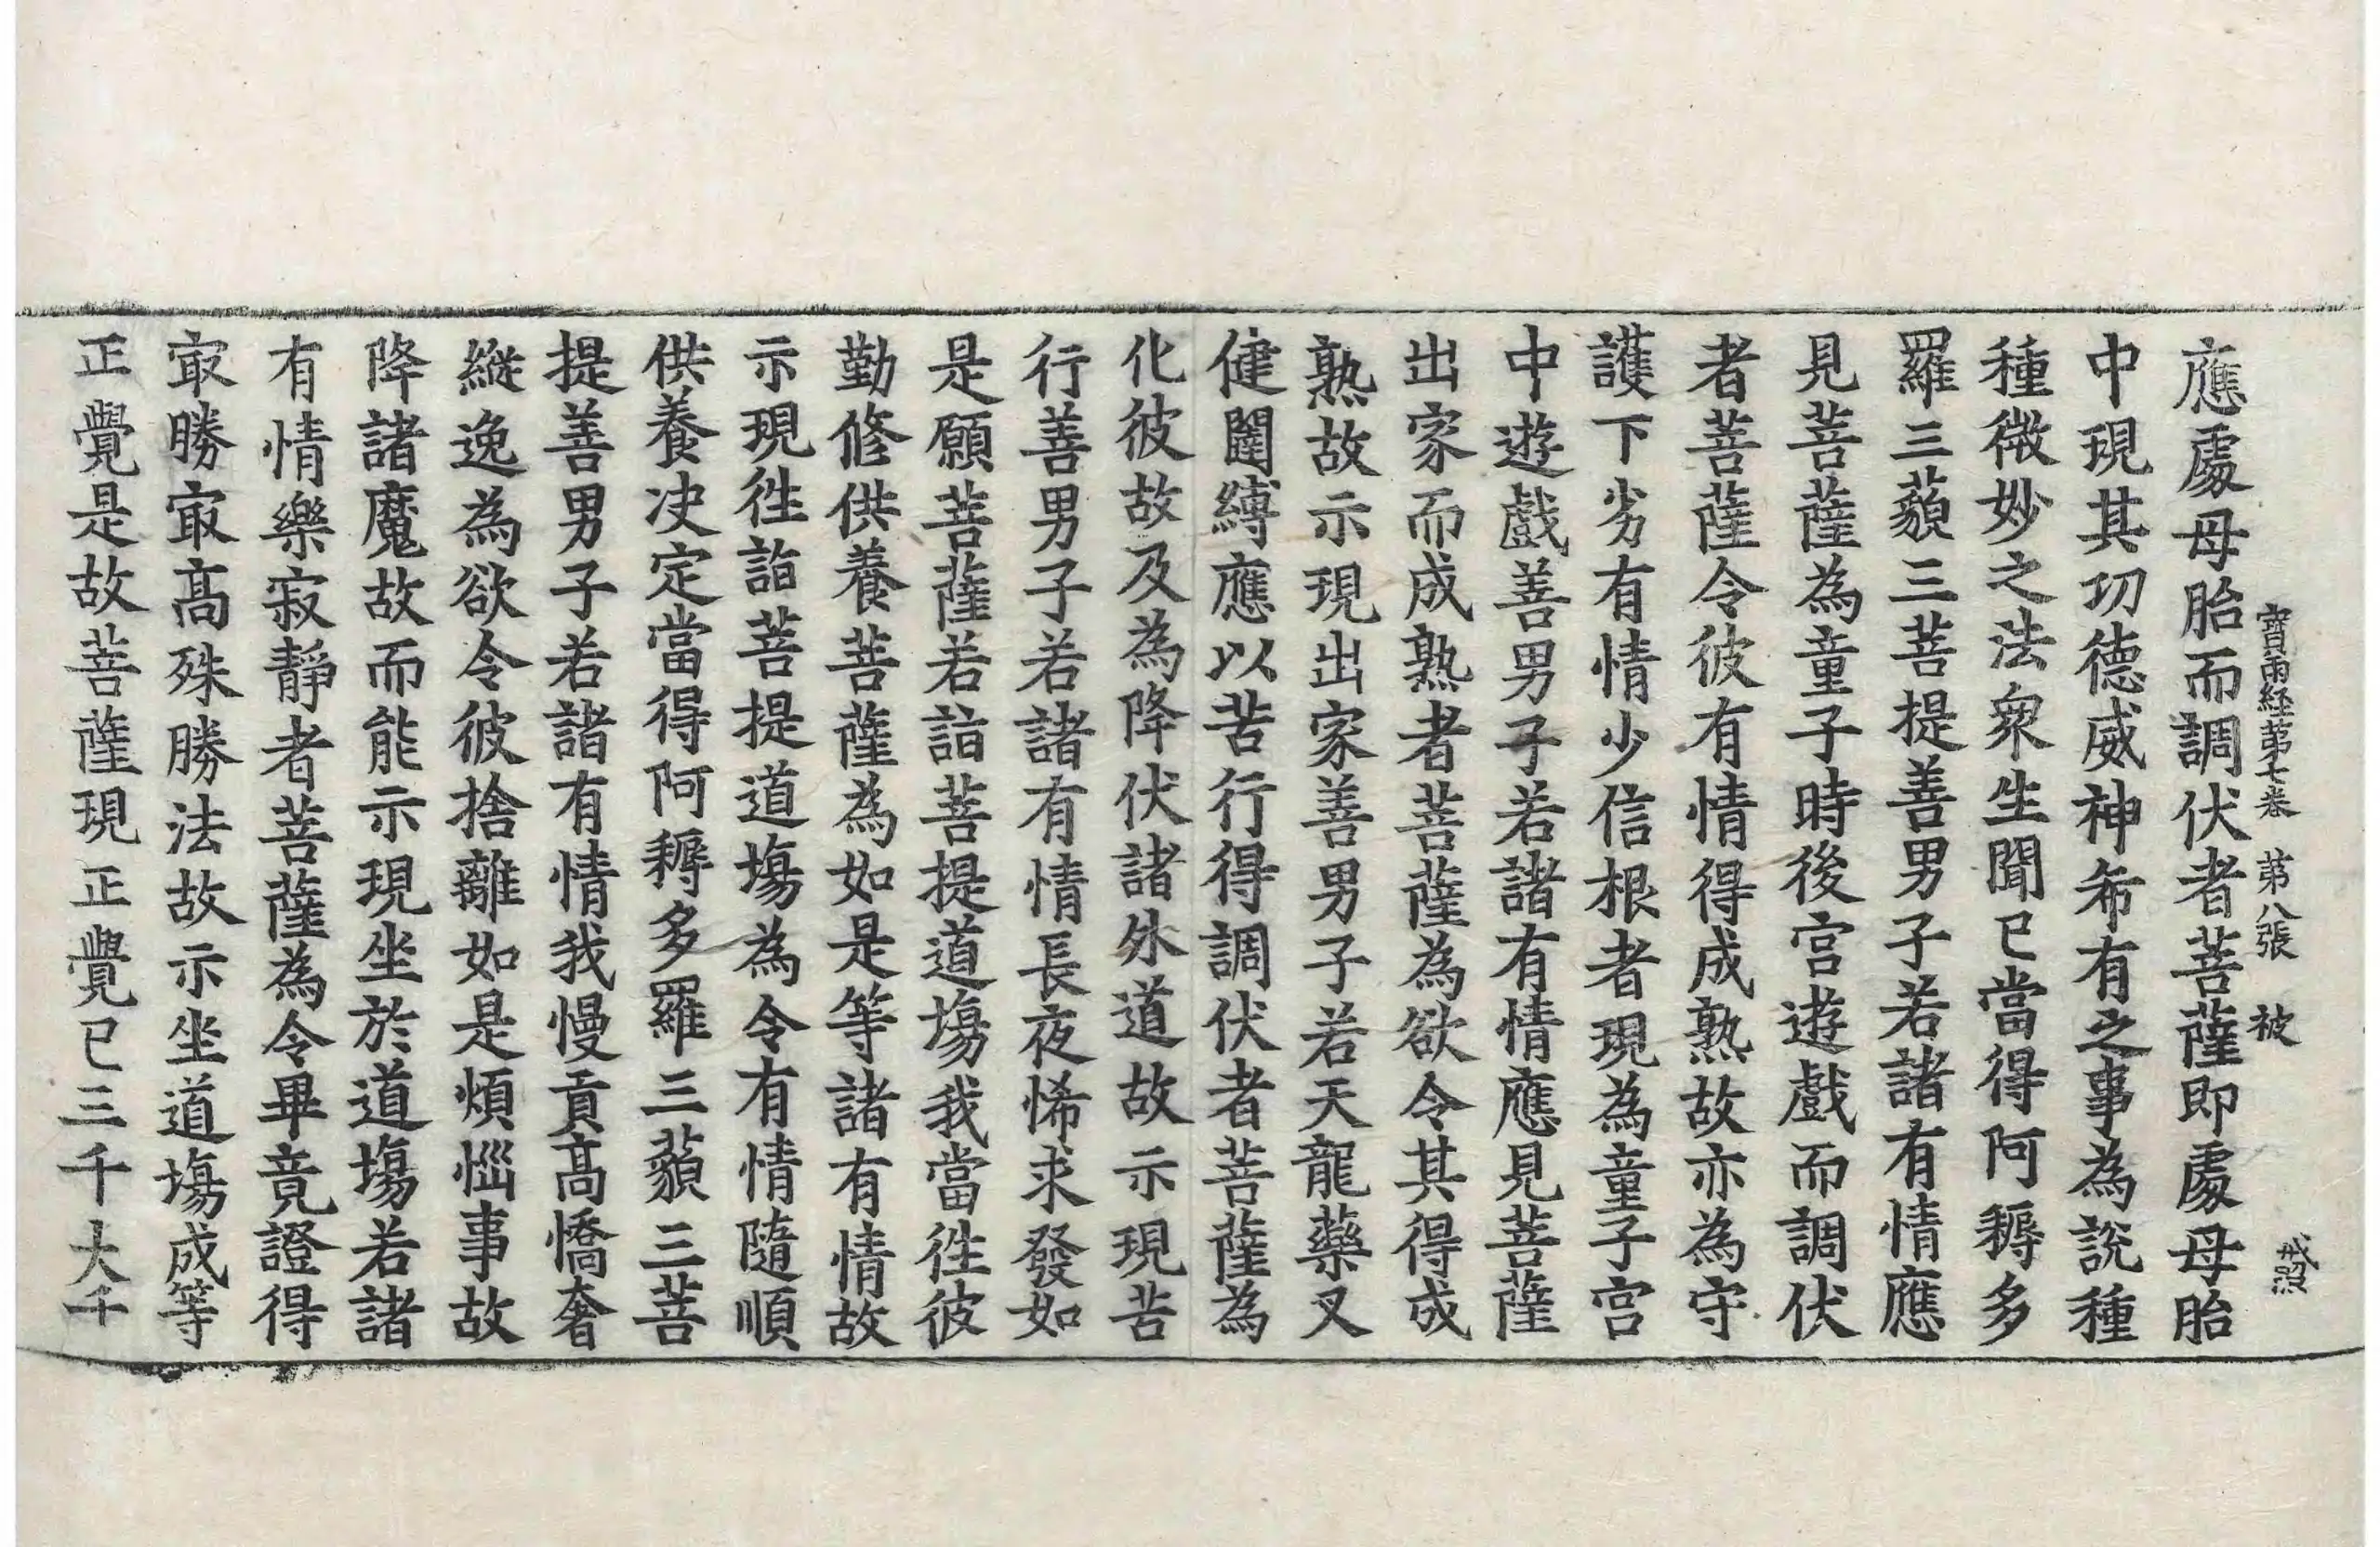 寳雨経苐七卷　苐八張　被　戒照
應處母胎而調伏者菩薩即處母胎
中現其功德威神希有之事為說種
種微妙之法衆生聞已當得阿耨多
羅三藐三菩提善男子若諸有情應
見菩薩為童子時後宮遊戲而調伏
者菩薩令彼有情得成熟故亦為守
護下劣有情少信根者現為童子宮
中遊戲善男子若諸有情應見菩薩
出家而成熟者菩薩為欲令其得成
熟故示現出家善男子若天龍藥叉
健闥縛應以苦行得調伏者菩薩為
化彼故及為降伏諸外道故示現苦
行善男子若諸有情長夜悕求發如
是願菩薩若詣菩提道塲我當往彼
勤修供養菩薩為如是等諸有情故
示現往詣菩提道塲為令有情隨順
供養决定當得阿耨多羅三藐三菩
提善男子若諸有情我慢貢髙憍奢
縱逸為欲令彼捨離如是煩惱事故
降諸魔故而能示現坐於道塲若諸
有情樂寂靜者菩薩為令畢竟證得
㝡勝㝡髙殊勝法故示坐道塲成等
正覺是故菩薩現正覺已三千大千